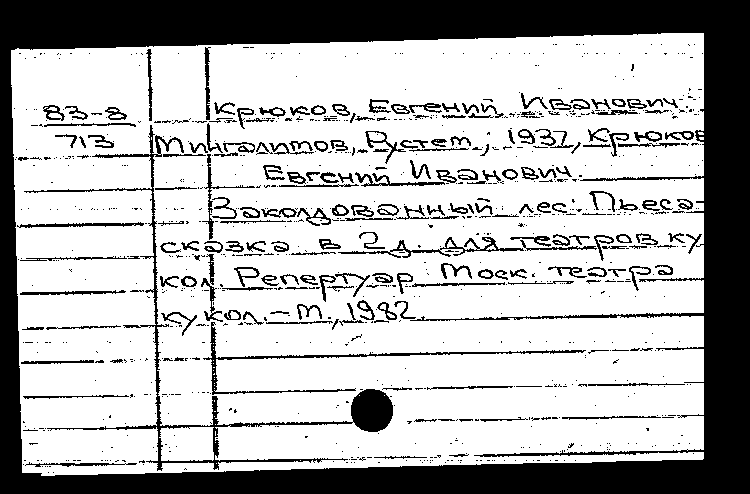 83-8
713
Крюков, Евгений Иванович.
Мингалимов, Рустем; 1937, Крюков
Евгений Иванович.
Заколдованный лес: Пьеса-
сказка в 2 д. для театров ку
кол. Репертуар Моск. театра
кукол. – М., 1982.